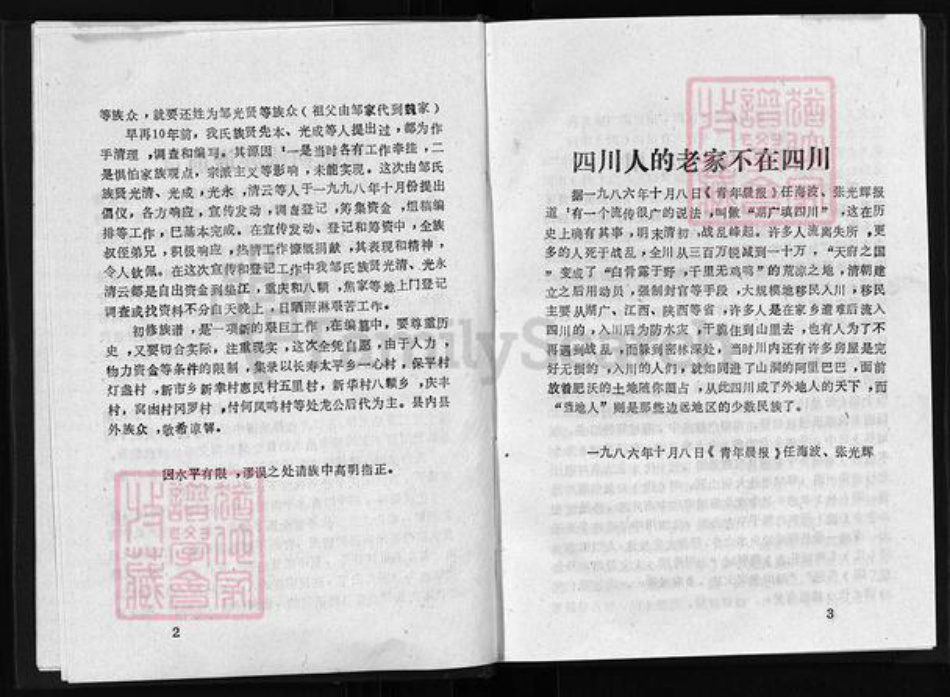 等族众,就要还姓为邹光贤等族众(祖父由邹家代到魏家)
早再10年前,我氏族贤先本、光成等人提出过,都为作
手清理,调查和编写。其源因'一是当时各有工作牵挂,二
是惧怕家族观点,宗派主义等影响,未能实现。这次由邹氏
族贤光清、光成,光永,清云等人于一九九八年十月份提出
倡仪,各方响应,宣传发动,调查登记,筹集资金,组稿编
排等工作,已基本完成。在宣传发动、登记和筹资中,全族
叔侄弟兄,积极响应,热情工作慷慨捐献,其表现和精神,
令人钦佩。在这次宣传和登记工作中我邹氏族贤光清、光永
清云都是自出资金到垫江,重庆和八颗,焦家等地上门登记
调查或找资料不分白天晚上,日晒雨淋艰苦工作。
初修族谱,是一项新的艰巨工作,在编纂中,要尊重历
史,又要切合实际,注重现实,这次全凭自愿,由于人力,
物力资金等条件的限制,集录以长寿太平乡一心村,保平村
灯盏村,新市乡新拳村惠民村五里村,新华村八颗乡,庆丰
村,窝凼村冈罗村,付何凤鸣村等处龙公后代为主。县内县
外族众,敬希谅解。
因水平有限,谬误之处请族中高明指正。
2
四川人的老家不在四川
据一九八六年十月八日《青年晨报》任海波、张光辉报
道'有一个流传很广的说法,叫做“湖广填四川”,这在历
史上确有其事,明末清初,战乱峰起。许多人流离失所,更
多的人死于战乱,全川从三百万锐减到一十万,“天府之国
”变成了“白骨露于野,千里无鸡鸣”的荒凉之地,清朝建
立之后用动员,强制封官等手段,大规模地移民入川,移民
主要从湖广、江西、陕西等省,许多人是在家乡遭难后流入
四川的,入川后为防水灾,干脆住到山里去,也有人为了不
再遇到战乱,而躲到密林深处,当时川内还有许多房屋是完
好无损的,入川的人们,就如同进了山洞的阿里巴巴,面前
放着肥沃的土地随你圈占,从此四川成了外地人的天下,而
“当地人”则是那些边远地区的少数民族了。
一九八六年十月八日《青年晨报》任海波、张光辉
3